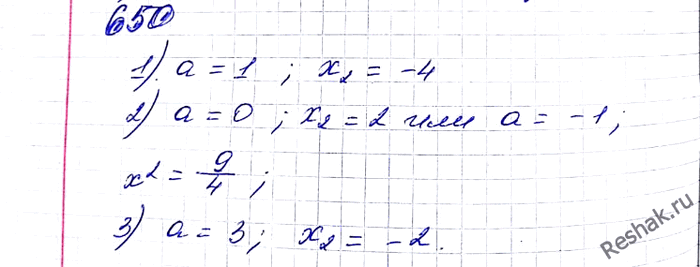 650
1). a = 1 ; x₂ = -4
2) a = 0 ; x₂ = 2 или a = -1 ;
x² = 9/4 ;
3) a = 3 ; x₂ = -2.
Reshak.ru